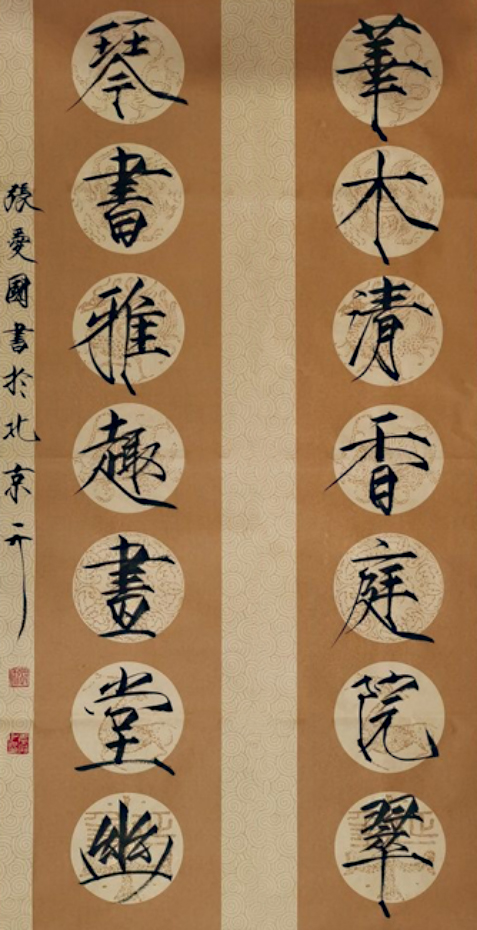 華木清香庭院翠
琴書雅趣畫堂幽
張愛國書於北京